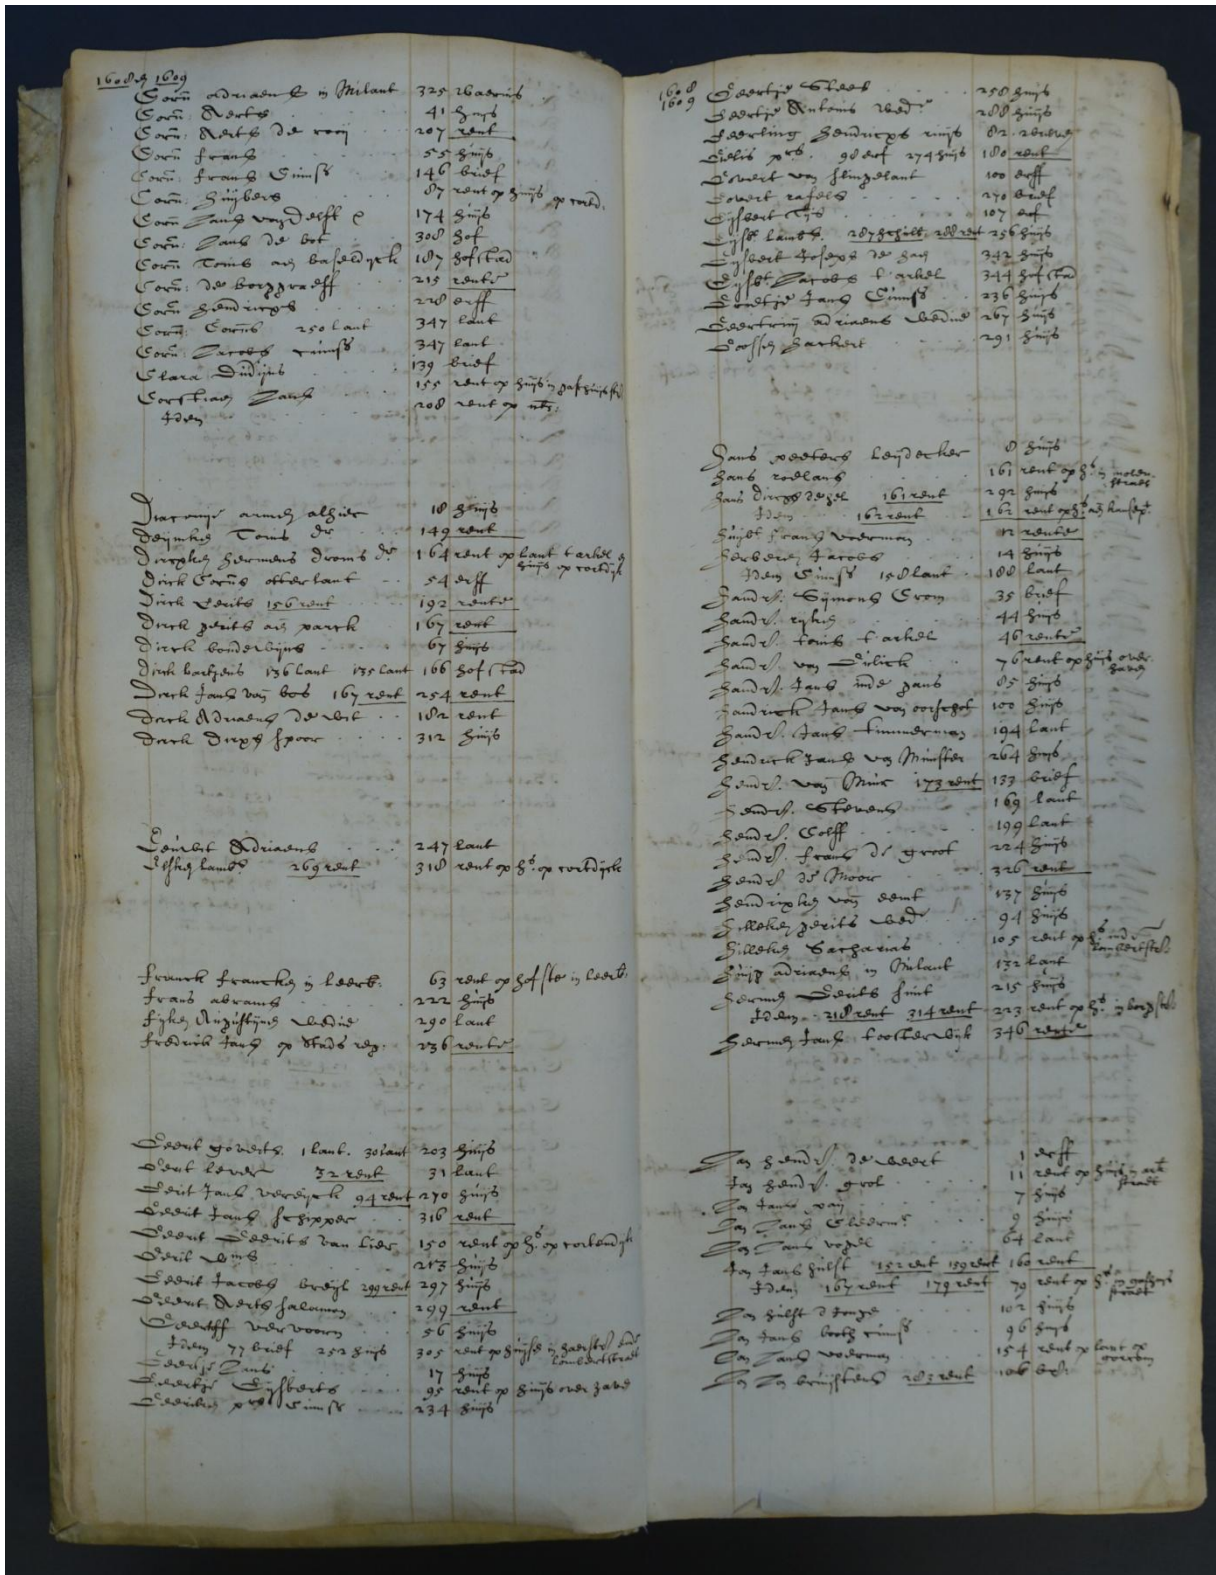 1608 en 1609
Corn adriaens in Milant 325 waerins
Corn: Aerts 41 huijs
Corn: Aerts de rooij 207 rent
Corn frans 55 huijs
Corn: frans Cuniss 146 brief
Corn: huijbers 87 rent op huijs op cortd:
Corn Jans van delft 174 huijs
Corn: Jans de bot 308 hof
Corn Tonis aen baseldijck 187 hofstad
Corn: de borggraeff 215 rente
Corn hendricxs 228 erff
Corn: Corns 250 lant 347 lant
Corn: Jacobs 347 lant
Clara 139 brief
Corstiaen Jans 155 rent op huijs in gasthuijsstr
Idem 208 rent op
Diaconije armen alhier 18 huijs
Deijnken Tonis dr 149 rent
Dirxken hermens dronis dr 164 rent op lant t arkel en
huijs op cortdijk
Dirck Corns otterlant 54 erff
Dirck Gerits 156 rent 192 rente
Dirck gerits aen parck 167 rent
Dirck bonderwijns 67 huijs
Dirck bartgens 136 lant 135 lant 166 hofstad
Dirck Jans van bos 167 rent 254 rent
Dirck Adriaens de wit 182 rent
Dirck Dirxs spoor 312 huijs
Adriaens 247 lant
Elsken lambs 269 rent 318 rent op hs op cortdijck
Franck francken in leerb: 63 rent op hofste in leerb:
Frans abrams 222 huijs
Fijken Augustijnen wedue 290 lant
Fredrick Jans op Stads reg. 236 rente
Geerit goverts 1 lant. 30 lant 203 huijs
Gerit lever 32 rent 31 lant
Gerit Jans verdijck 94 rent 270 huijs
Geerit Jans schipper 316 rent
Geerit Geerits van lier 150 rent op hs op cortendijk
Gerit wms 213 huijs
Geerit Jacobs breijl 299 rent 297 huijs
Geerit Aerts salamon 299 rent
Geerloff vervoorn 56 huijs
Idem 77 brief 252 huijs 305 rent op huijse in haerstr ende
lombertstraet
Geertje Jans 17 huijs
Geertge Gijsberts 95 rent op huijs over have
Geerken prs Cuniss 234 huijs
1608
1609 Geertje Slees 258 huijs
Geertje Antonis wedr 288 huijs
Geerling hendricxs 82
Gielis prs. 98 erf 274 huijs 180 rent
Govert van slingelant 100 erff
Govert rafels 270 brief
Gijsbert Tijs 107 erf
Gijsb. lambs. 287 schilt 288 rent 256 huijs
Gijsbert Joseps de haen 342 huijs
Gijsbt Jacobs t arkel 344 hofstad
Grietje Jans Cuniss 236 huijs
Geertruij adriaens wedue 267 huijs
Goossen hackert 291 huijs
Hans peeters leijdecker 8 huijs
Hans roelans 161 rent op hs in molen
straet
Hans Dircxs 161 rent 292 huijs
Idem 162 rent 162 rent op hs aen
Huijbt frans veerman 12 rente
Herberen Jacobs 14 huijs
Idem Cuniss 158 lant 188 lant
Handr. Sijmons Crom 35 brief
Handr. rijken 44 huijs
Handr. tonis t arkel 46 rente
Handr van Gulick 76 rent op huijs over
haven
Handr. Jans inde gans 85 huijs
Handrick Jans van oorschot 100 huijs
Handr. Jans timmerman 194 lant
Hendrick Jans van Munster 264 huijs
Hendr. van Muic 173 rent 133 brief
Hendr. Stevens 169 lant
Hendr. Colff 199 lant
Hendr. frans de groot 224 huijs
Hendr de Moor 326 rent
Hendrixken van eemt 137 huijs
Hilleken gerits wede 94 huijs
Hilleken Sacharias 105 rent op hs inde
lombertstr.
Huijg adriaens in Milant 132 lant
Hermen Gerits smit 215 huijs
Idem 218 rent 314 rent 323 rent op hs in borgstr.
Hermen Jans t oosterwijk 346 rente
Jan hendr. de weert 1 erff
Jan hendr. grol 11 rent op huijs in
straet
Jan Jans pan 7 huijs
Jan Jans Cleerm. 9 huijs
Jan Jans vogel 64 lant
Jan Jans hulst 152 rent 159 rent 160 rent
Idem 167 rent 179 rent 79 rent op hs in gasthuis
straet
Jan hulst d Jonge 102 huijs
Jan Jans both cuniss 96 huijs
Jan Jans veerman 154 rent op lant op
gorcom
Jan Jan bruijstens 283 rent 106